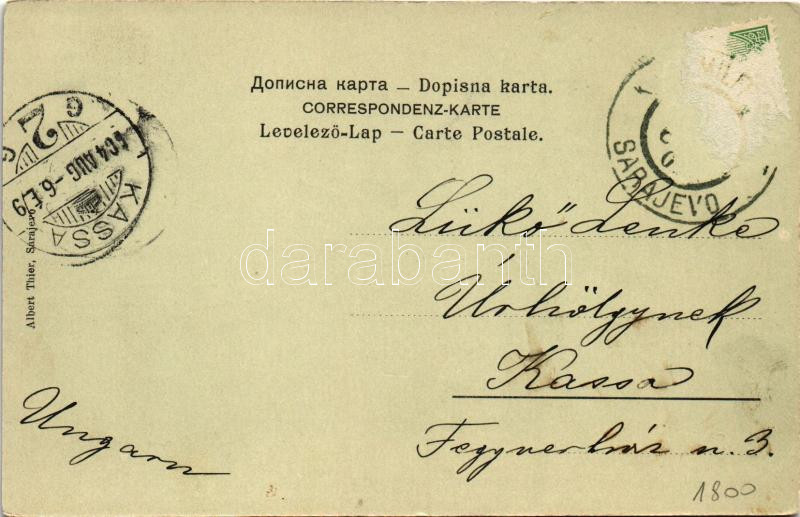 Дописна карта — Dopisna karta.
CORRESPONDENZ-KARTE
Levelező-Lap — Carte Postale.
SARAJEVO
904 AUG -6
KASSA
Albert Thier, Sarajevo
darabanth
Lükő Lenke
Úrhölgynek
Kassa
Fegyverház u. 3.
Ungarn
1800